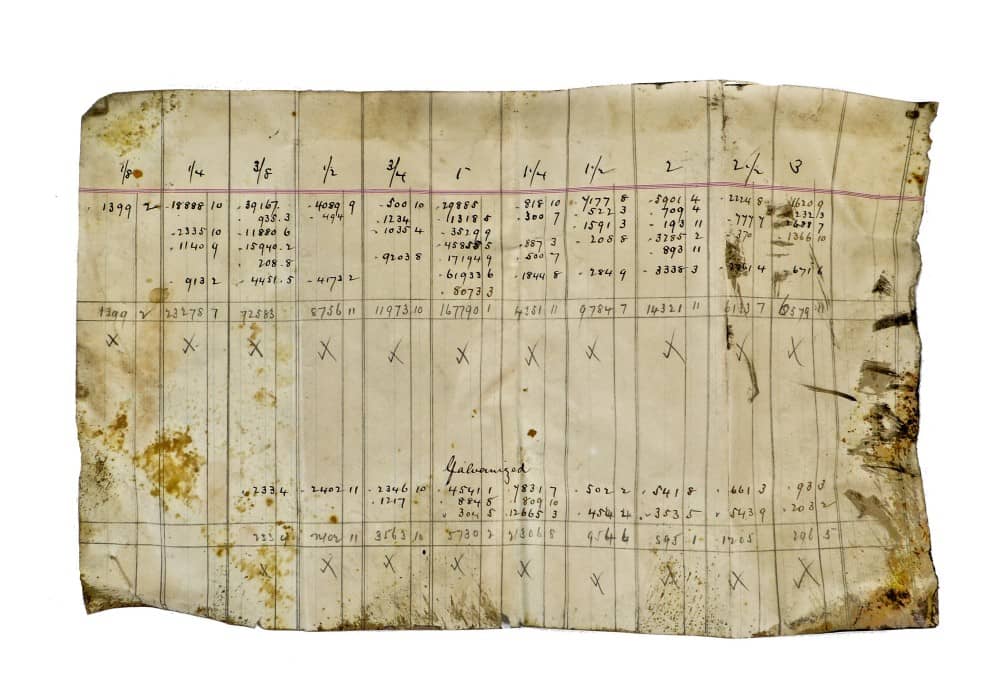 1/8 1/4 3/8 1/2 3/4 1" 1 1/4 1 1/2 2 2 1/2 3
1399 2 18888 10 39167 4089 9 500 10 29885 818 10 7177 8 5901 4 2224 8 1620 9
935.3 494 1234 11318 5 300 7 522 3 709 4 232 3
2335 10 11880 6 1035 4 35299 1591 3 193 11 777 7 2688 7
1140 9 15940.2 45858 5 887 3 205 8 3285 2 370 1366 10
208.8 9203 8 17194 9 500 7 893 11
913 2 4451.5 4173 2 61933 6 1844 8 284 9 3338 3 671 6
8073 3
1399 2 23278 7 72583 8756 11 11973 10 167790 1 4351 11 9784 7 14321 11 6133 7 6579 11
X X X X X X X X X X X
Galvanized
233 4 2402 11 2346 10 4541 1 7831 7 502 2 541 8 661 3 93 3
1217 884 5 809 10
304 5 12665 3 454 4 353 5 543 9 203 2
233 4 2402 11 3563 10 5730 2 21306 8 956 6 595 1 1205 296 5
X X X X X X X X X